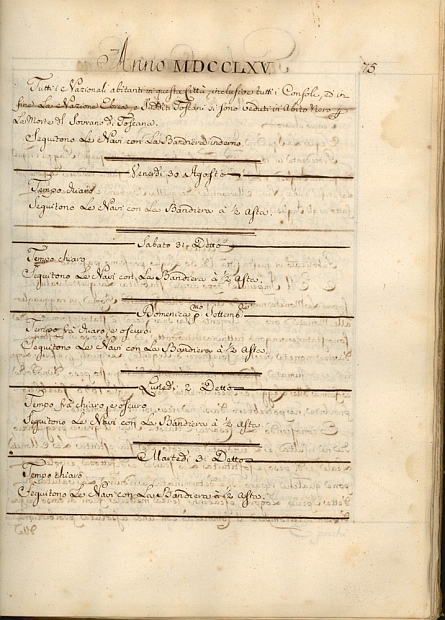 Anno MDCCLXV.
75
Tutti i Nazionali abitanti in questa Città, inclusive tutti i Consoli, ed in
fine La Nazione Ebrea, e Sudditi Toscani si sono veduti in Abito Nero p
La Morte del Sovrano di Toscana.
Seguitono Le Navi con La Bandiera
Venerdi 30 Agosto
Tempo chiaro
Seguitono Le Navi con La Bandiera à ½ Asta.
Sabato 31 Detto
Tempo chiaro
Seguitono Le Navi con La Bandiera à ½ Asta.
Domenica p.mo Settemb.re
Tempo frà chiaro, e oscuro
Seguitono Le Navi con La Bandiera à ½ Asta.
Lunedi 2 Detto
Tempo frà chiaro, e oscuro
Seguitono Le Navi con La Bandiera à ½ Asta.
Martedi 3 Detto
Tempo chiaro
Seguitono Le Navi con La Bandiera à ½ Asta.